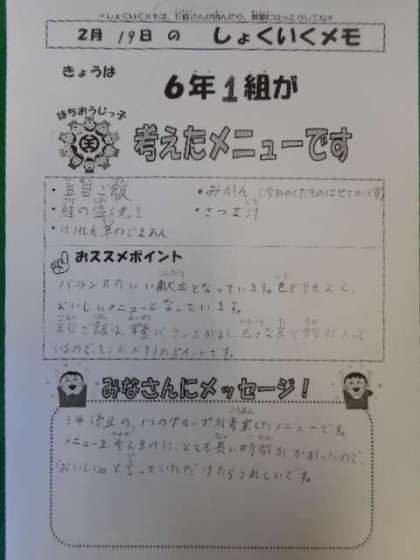 2月 19日 の しょくいくメモ
きょうは
6年1組が
はちおうじっ子
考えたメニューです
・五目ご飯 ・みかん(今日のくだものはせとかです)
・鮭の塩焼き ・さつま汁
・ほうれん草のごまあえ
おススメポイント
バランスのいい献立となっています。色どりもよく、
おいしいメニューとなっています。
五目ご飯は、栄養バランスがよく、
いるので、そこがおすすめポイントです。
みなさんにメッセージ!
6年1組の、1つのグループが考案したメニューです。
メニューを考えるのに、とても長い時間がかかったので、
「おいしい」と言っていただけたらうれしいです。